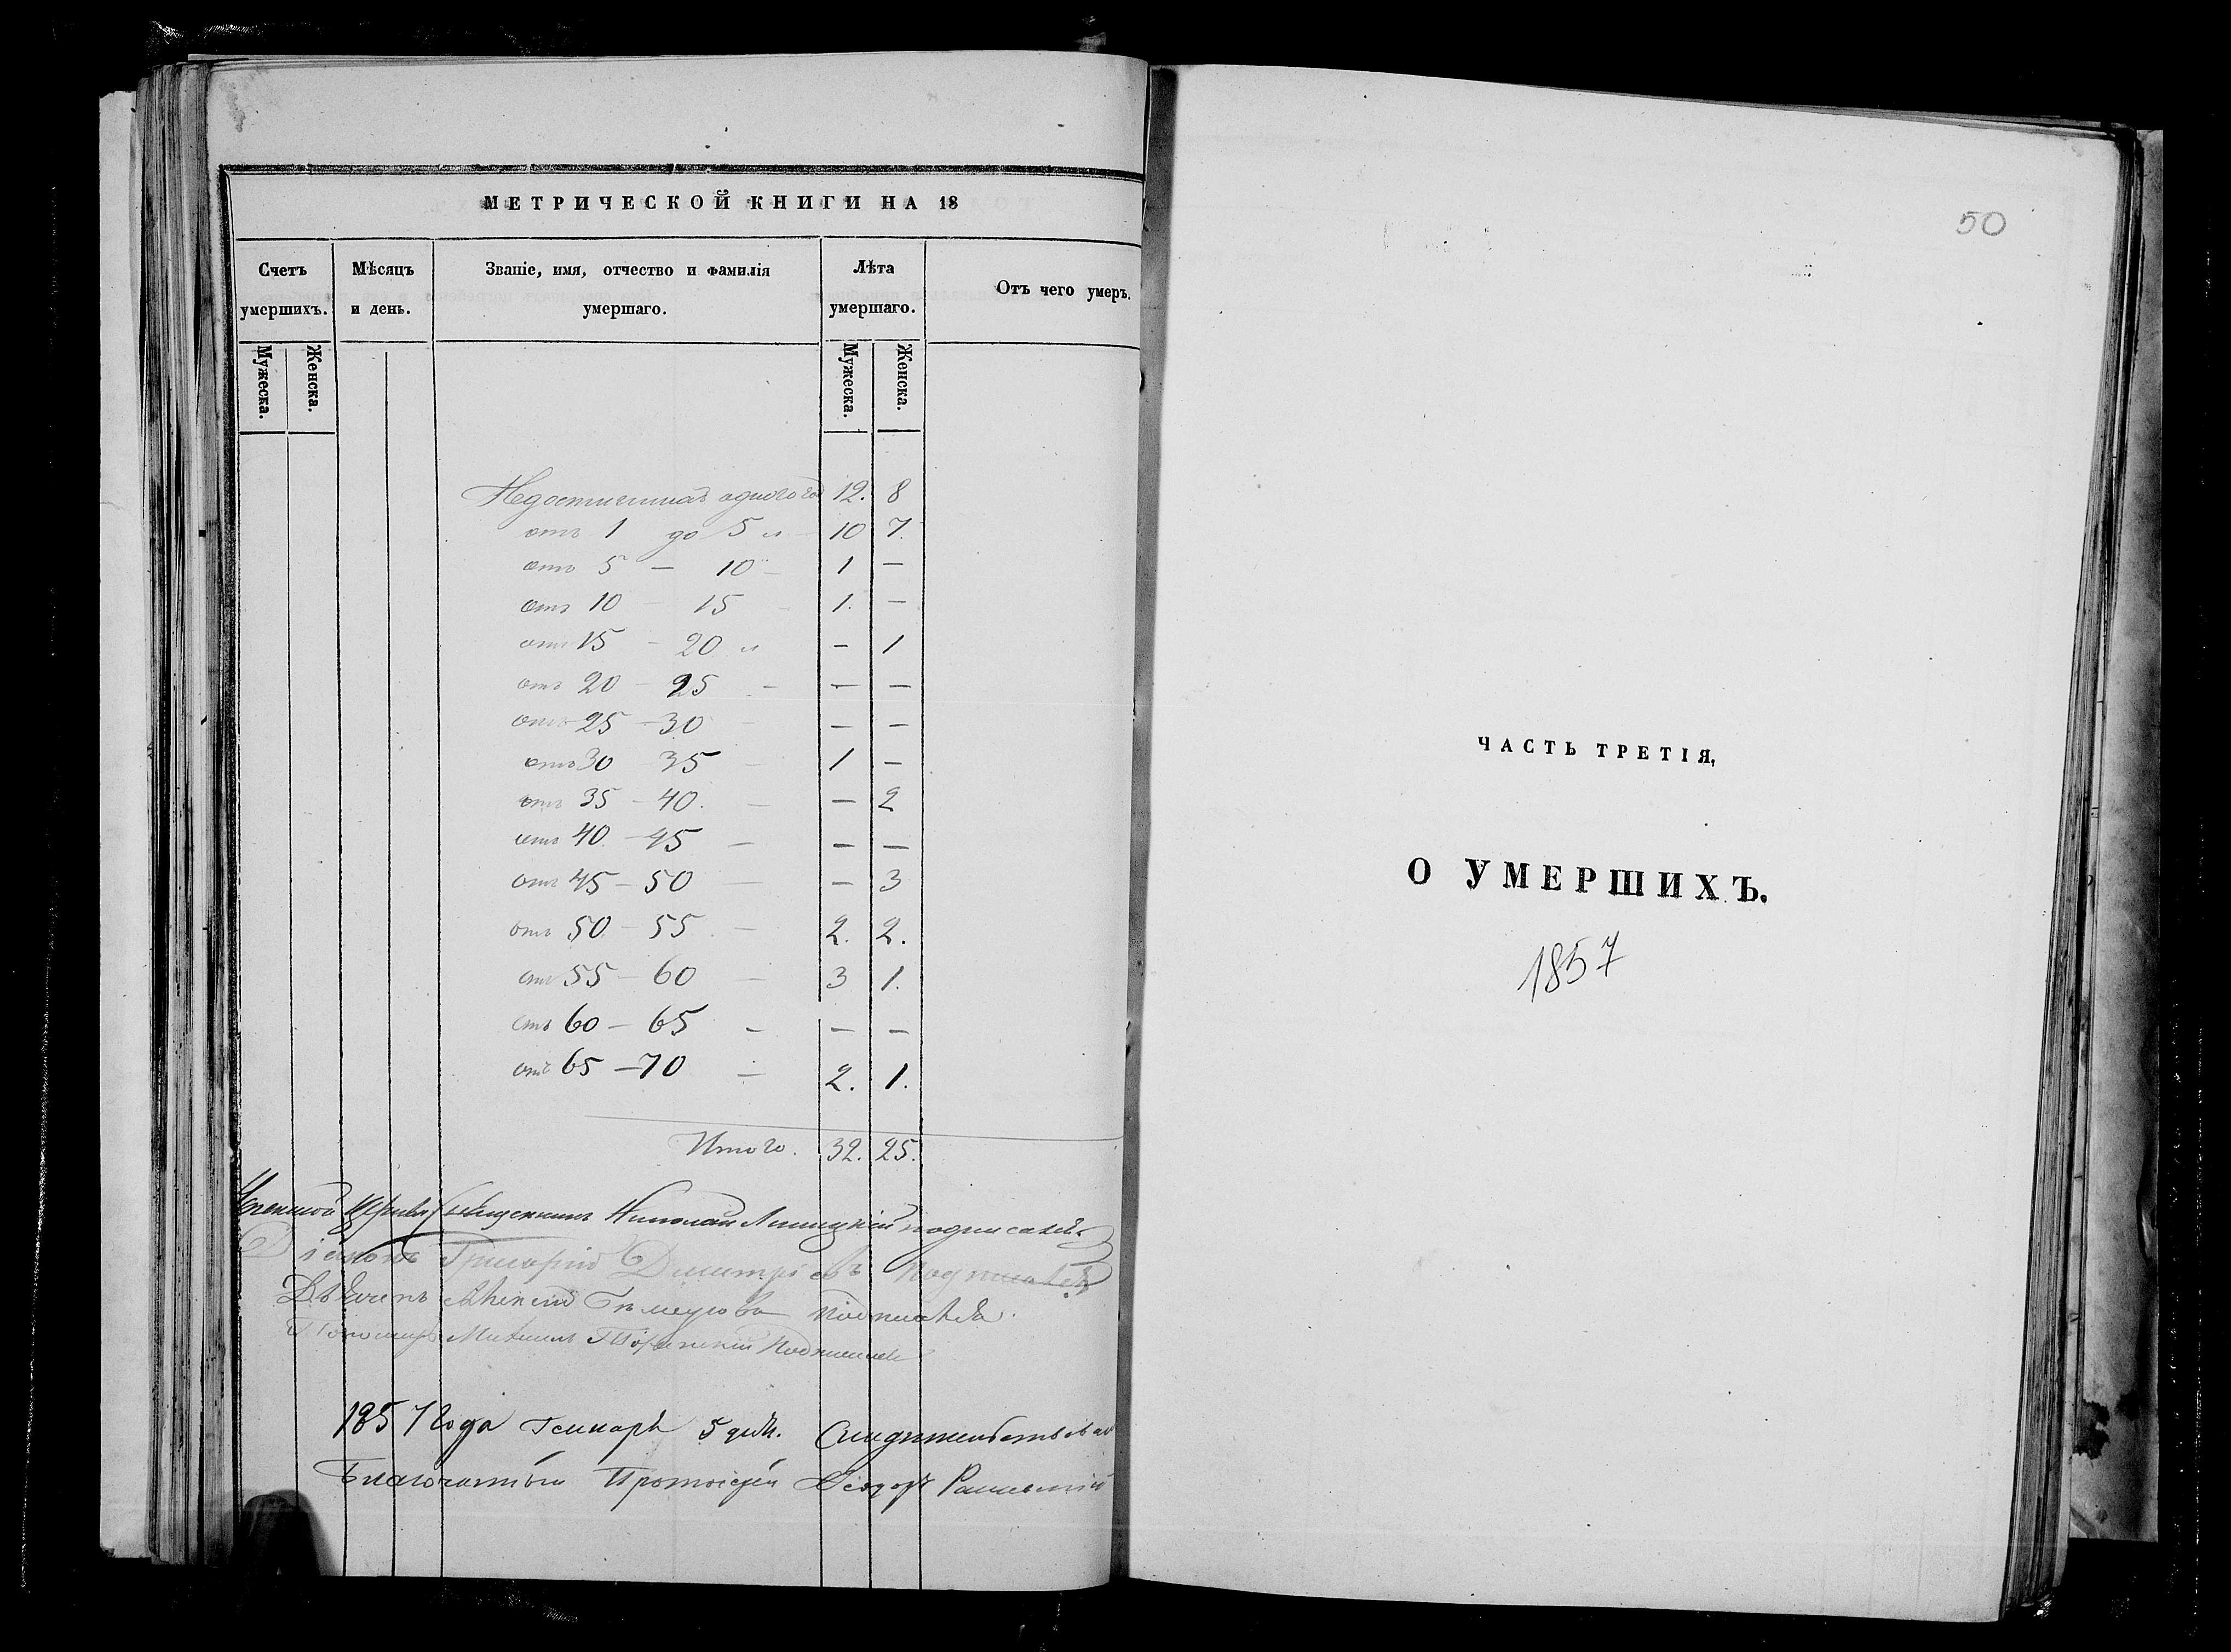 МЕТРИЧЕСКОЙ КНИГИ НА 18
Счетъ умершихъ. Мѣсяцъ и день. Званіе, имя, отчество и фамилія умершаго. Лѣта умершаго. Отъ чего умеръ.
Мужеска. Женска. Мужеска. Женска.
Недостигших одного го 12. 8
отъ 1 до 5 л 10 7.
отъ 5 — 10 — 1 —
отъ 10 — 15 — 1. —
отъ 15 — 20 л — 1
отъ 20 — 25 — — —
отъ 25 — 30 — — —
отъ 30 35 — 1 —
отъ 35 — 40. — — 2
отъ 40. — 45 — — —
отъ 45 — 50 — — 3
отъ 50 — 55 — 2. 2.
отъ 55 — 60 — 3 1.
отъ 60 — 65 — — —
отъ 65 — 70 — 2. 1.
Итого. 32. 25.
Священникъ Николай подписалъ
Діаконъ Григорій Димитріевъ Подписалъ
Дьячекъ Алексій подписался
Пономарь Михаилъ Подписался
1857 Года Генваря 5 дня. Свидѣтельствовал
Благочинный Протоіерей Ѳеодоръ
50
ЧАСТЬ ТРЕТІЯ,
О УМЕРШИХЪ.
1857